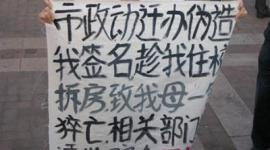 市政动迁办伪造
我签名趁我住
拆房致我母一
猝亡.相关部门